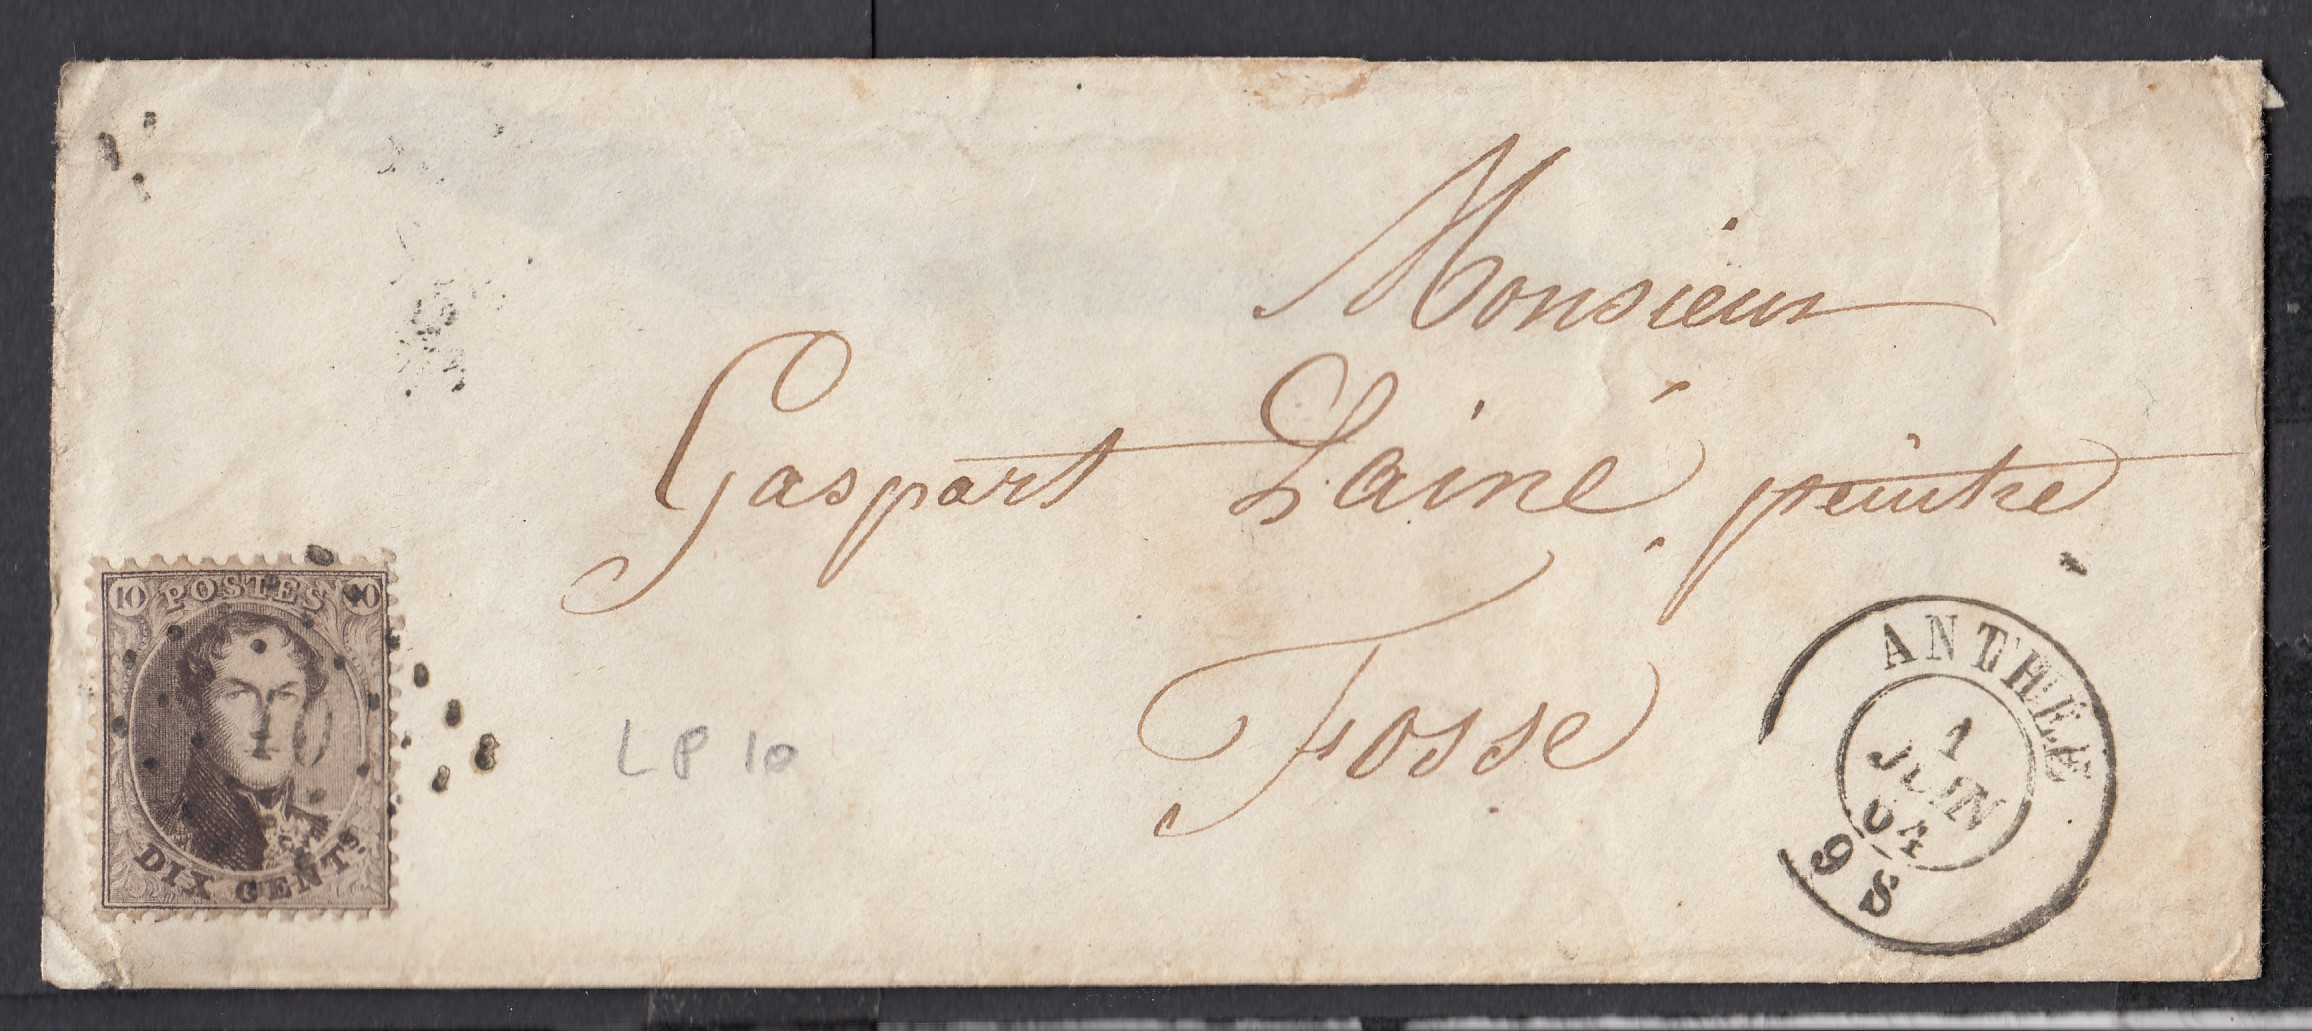 Monsieur
Gaspart Lainé, peintre
Fosse
10 POSTES 10
DIX CENTS.
LP 10
ANTHÉE
1
JUIN
64
9 S